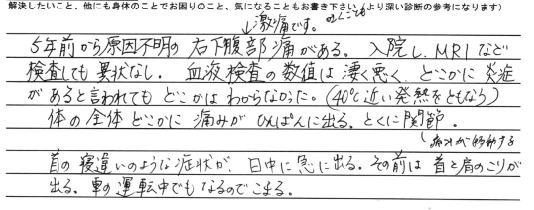 解決したいこと、他にも身体のことでお困りのこと、気になることもお書き下さい(より深い診断の参考になります)
激痛です。吐くことも
5年前から原因不明の右下腹部痛がある。入院し、MRIなど
検査しても異状なし。血液検査の数値は凄く悪く、どこかに炎症
があると言われてもどこかはわからなかった。(40℃近い発熱をともなう)
体の全体どこかに痛みがひんぱんに出る。とくに関節。
痛みが移動する
首の寝違いのような症状が、日中に急に出る。その前は首と肩のこりが
出る。車の運転中でもなるのでこまる。